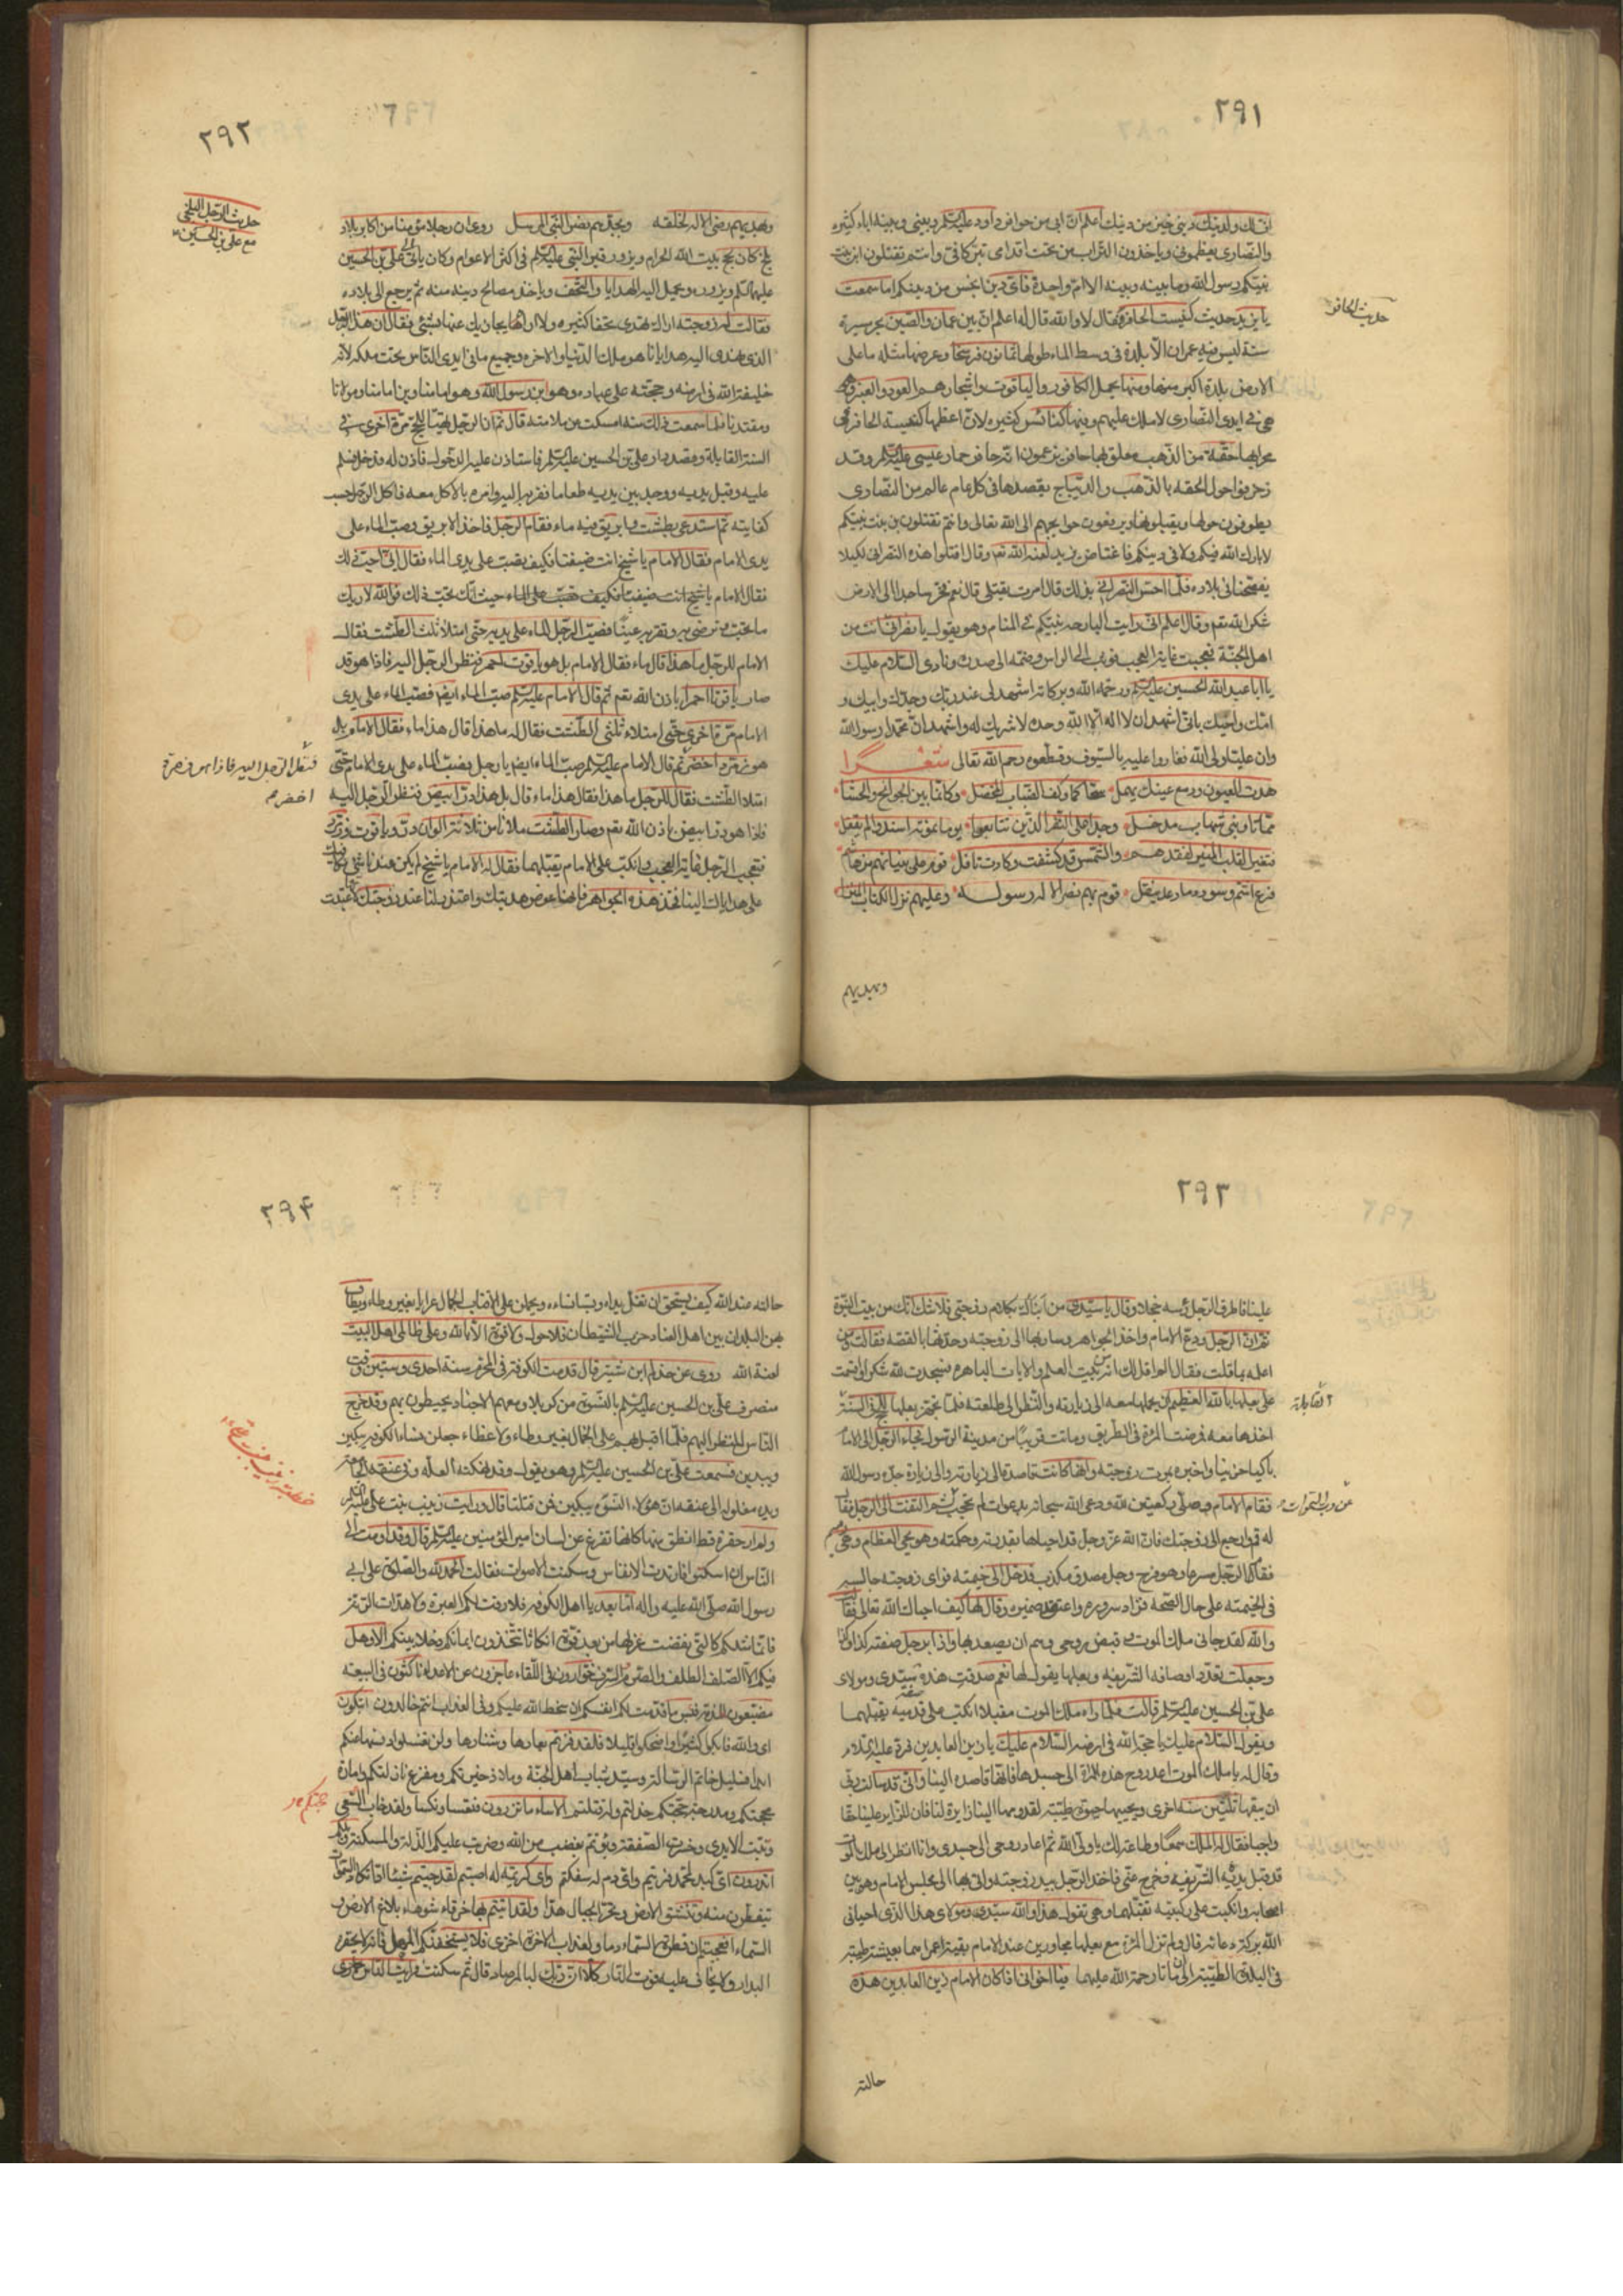 ٢٩١
اف لك ولدينك ديني خير من دينك اعلم ان ابي من حوافر داود عليه السلم وبيني وبينه اباء كثيره
والنصارى يعظموني وياخذون التراب من تحت اقدامي تبركا في وانتم تقتلون ابن بنت
نبيكم رسول الله وما بينه وبينه الا ام واحدة فاي دين اخس من دينكم اما سمعت
يا يزيد حديث كنيست الحافر فقال لا والله قال له اعلم ان بين عمان والصين بحر مسيرة
حديث الحافر
سنة ليس فيه عمران الا بلدة في وسط الماء طولها ثمانون فرسخا وعرضها مثله ما على
الارض بلدة اكبر منها ومنها يحمل الكافور والياقوت واشجارهم العود والعنبر وهي
هي في ايدي النصارى لا ملك عليهم وفيها كنائس كثيره لان اعظمها كنيسة الحافر في
محرابها حقة من الذهب معلق بها حافر يزعمون انه حافر حمار عيسى عليه السلم وقد
زخرفوا حول الحقه بالذهب والديباج يقصدها في كل عام عالم من النصارى
يطوفون حولها ويقبلونها ويرفعون حوايجهم الى الله تعالى وانتم تقتلون بن بنت نبيكم
لا بارك الله فيكم ولا في دينكم فاغتاض يزيد لعنه الله تعم وقال اقتلوا هذه النصراني لكيلا
يفضحنا في بلاده فلما احس النصراني بذلك قال امرت بقتلي قال نعم فخر ساجدا الى الارض
شكر الله تعم وقال اعلم اني رايت البارحه نبيكم في المنام وهو يقول يا نصراني انت من
اهل الجنة فعجبت غاية العجب فوثب الى الراس وضمه الى صدره ونادى السلام عليك
يا ابا عبد الله الحسين عليه السلم ورحمة الله وبركاته اشهد لي عند ربك وجدك وابيك و
امك واخيك باني اشهد ان لا اله الا الله وحده لا شريك له واشهد ان محمدا رسول الله
وان عليا ولي الله فغاروا عليه بالسيوف وقطعوه رحمه الله تعالى شعرا
هدت العيون ودمع عينك يهمل سحا كما وكف الضباب المخضل وكانما بين الجوانح والحشا
مما تاوبني شهاب مدخل وجدا على النفر الذين تتابعوا يوما بموته اسندوا لم يقفل
فتغير القلب المنير لفقدهم والشمس قد كسفت وكادت تافل قوم على بنيانهم من هاشم
فرع اشم وسودد ما عد ينقل قوم بهم نصر الاله رسوله وعليهم نزل الكتاب المنزل
وبهديهم
٢٩٢
وبهديهم رضي الاله لخلقه وبجدهم نصر النبي المرسل روي ان رجلا مؤمنا من اكابر بلاد
حديث الرجل البلخي
مع علي بن الحسين
بلخ كان يحج بيت الله الحرام ويزور قبر النبي عليه السلم في اكثر الاعوام وكان ياتي الى علي بن الحسين
عليهما السلم ويزوره ويحمل اليه الهدايا والتحف وياخذ مصالح دينه منه ثم يرجع الى بلاده
فقالت له زوجته اراك تهدي تحفا كثيره ولا اراه يجازيك عنها بشئي فقال ان هذا الرجل
الذي نهدي اليه هدايانا هو ملك الدنيا والاخره وجميع ما في ايدي الناس تحت ملكه لانه
خليفة الله في ارضه وحجته على عباده وهو ابن رسول الله وهو امامنا وبن امامنا ومولانا
ومقتدانا فلما سمعت ذلك منه امسكت من ملامته قال ثم ان الرجل تهيا للحج مرة اخرى في
السنة القابلة وقصد دار علي بن الحسين عليه السلم فاستاذن عليه الدخول فاذن له فدخل فسلم
عليه وقبل يديه ووجد بين يديه طعاما فقربه اليه وامره بالاكل معه فاكل الرجل حسب
كفايته ثم استدعي بطشت وابريق فيه ماء فقام الرجل فاخذ الابريق وصب الماء على
يدي الامام فقال الامام يا شيخ انت ضيفنا فكيف تصب على يدي الماء فقال اني احب ذلك
فقال الامام يا شيخ انت ضيفنا فكيف تصب على الماء حيث انك تحب ذلك فوالله لاريك
ما تحب وترضي به وتقر به عينا فصب الرجل الماء على يديه حتى امتلا ثلث الطشت فقال
الامام للرجل ما هذا قال ماء فقال الامام بل هو ياقوت احمر فنظر الرجل اليه فاذا هو قد
صار ياقوتا احمرا باذن الله تعم ثم قال الامام عليه السلم صب الماء ايضم فصب الماء على يدي
الامام مرة اخرى حتى امتلاء ثلثي الطشت فقال له ما هذا قال هذا ماء فقال الامام بل
هو زمرد اخضر ثم قال الامام عليه السلم صب الماء ايضم يا رجل فصب الماء على يدي الامام حتى
فنظر الرجل اليه فاذا هو زمرد
اخضر
امتلا الطشت فقال للرجل ما هذا فقال هذا ماء قال بل هذا در ابيض فنظر الرجل اليه
فاذا هو در ابيض باذن الله تعم وصار الطشت ملانا من ثلاثة الوان در وياقوت وزمرد
فتعجب الرجل غاية العجب وانكب على الامام يقبلهما فقال له الامام يا شيخ لم يكن عندنا شئ نكافيك
على هداياك الينا فخذ هذه الجواهر فانها عوض هديتك واعتذر لنا عند زوجتك لانها عتبت
٢٩٣
علينا فاطرق الرجل رسه خجلا وقال يا سيدي من انباك بكلام زوجتي فلا شك انك من بيت النبوة
ثم ان الرجل ودع الامام واخذ الجواهر وسار بها الى زوجته وحدثها بالقصه فقالت من
اعلمه بما قلت فقال الم اقل لك انه من بيت العلم والايات الباهره فسجدت لله شكرا واقسمت
على بعلها بالله العظيم ان يحملها معه الى زيارته والنظر الى طلعته فلما تجهز بعلها للحج في السنة
القابلة
اخذها معه فمرضت المرة في الطريق وماتت قريبا من مدينة الرسول فجاء الرجل الى الامام
باكيا حزينا واخبره بموت زوجته وانها كانت قاصدة الى زيارته والى زيارة جده رسول الله
فقام الامام وصلى ركعتين لله ودعى الله سبحانه بدعوات لم تحجب ثم التفت الى الرجل فقال
عن رب السموات
له قم وارجع الى زوجتك فان الله عز وجل قد احياها بقدرته وحكمته وهو يحي العظام وهي رميم
فقام الرجل مسرعا وهو فرح وجل مصدق مكذب فدخل الى خيمته فراى زوجته جالسه
في الخيمته على حال الصحه فزاد سروره واعتقد ضميره وقال لها كيف احياك الله تعالى فقالت
والله لقد جاني ملك الموت وقبض روحي وهم ان يصعد بها واذا برجل صفته كذا وكذا
وجعلت تعدد اوصافه الشريفه وبعلها يقول لها نعم صدقت هذه صفة سيدي ومولاي
علي بن الحسين عليه السلم قالت فلما راه ملك الموت مقبلا انكب على قدميه يقبلهما
ويقول السلام عليك يا حجة الله في ارضه السلام عليك يا زين العابدين فرد عليه السلام
وقال له يا ملك الموت اعد روح هذه المراة الى جسدها فانها قاصده الينا واني قد سالت ربي
ان يبقيها ثلثين سنه اخرى ويحييها حيوة طيبة لقدومها الينا زايرة لنا فان للزاير علينا حقا
واجبا فقال له الملك سمعا وطاعة لك يا ولي الله ثم اعاد روحي الى جسدي وانا انظر الى ملك الموت
قد قبل يديه الشريفه وخرج عني فاخذ الرجل بيد زوجته واتى بها الى مجلس الامام وهو بين
اصحابه وانكبت على ركبتيه تقبلهما وهي تقول هذا والله سيدي ومولاي هذا الذي احياني
الله ببركة دعائه قال ولم تزل المرة مع بعلها مجاورين عند الامام بقية اعمارهما بعيشة طيبة
في البلدة الطيبة الى ان ماتا رحمة الله عليهما فيا اخواني اذا كان الامام زين العابدين هذه
حالته
٢٩٤
حالته عند الله كيف يستحق ان تقتل بناه وتسبا نساءه ويحملن على الاقتاب الجمال عرايا بغير وطاء ويطاف
بهن البلدان بين اهل العناد حزب الشيطان فلا حول ولا قوة الا بالله وعلى ظالمي اهل البيت
لعنة الله روي عن حذلم ابن شتير قال قدمت الكوفة في المحرم سنة احدى وستين وقت
منصرف علي بن الحسين عليه السلم بالنسوة من كربلا ومعهم الاجناد يحيطون بهم وقد خرج
الناس للنظر اليهم فلما اقبل بهم على الجمال بغير وطاء ولا غطاء جعلن نساء الكوفه يبكين
خطبة زينب بنت علي
ويندبن فسمعت علي بن الحسين عليه السلم وهو يقول وقد نهكته العله وفي عنقه الجامعة
ويده مغلوله الى عنقه ان هؤلاء النسوة يبكين فمن قتلنا قال ورايت زينب بنت علي عليه السلم
ولم ار خفرة قط انطق منها كانها تفرغ عن لسان امير المؤمنين عليه السلم قال وقد اومت الى
الناس ان اسكتوا فارتدت الانفاس وسكنت الاصوات فقالت الحمد لله والصلوة على ابي
رسول الله صلى الله عليه واله اما بعد يا اهل الكوفه فلا رقت لكم العبرة ولا هدات الرنة
فانما مثلكم كالتي نقضت غزلها من بعد قوة انكاثا تتخذون ايمانكم دخلا بينكم الا وهل
فيكم الا الصلف الطلف والضرم الشرف خوارون في اللقاء عاجزون عن الاعداء ناكثون في البيعه
مضيعون للذمة فبئس ما قدمت لكم انفسكم ان سخط الله عليكم وفي العذاب انتم خالدون اتبكون
اي والله فابكوا كثيرا واضحكوا قليلا فلقد فزتم بعارها وشنارها ولن تغسلوا دنسها عنكم
ابدا فسليل خاتم الرسالة وسيد شباب اهل الجنة وملاذ خيرتكم ومفزع نازلتكم وامارة
محجتكم ومدرجة حجتكم خذلتم وله قتلتم الا ساء ما تزرون فتعسا ونكسا ولقد خاب السعي
محجتكم
وتبت الايدي وخسرت الصفقة وبؤتم بغضب من الله وضربت عليكم الذلة والمسكنة ويلكم
اتدرون اي كبد لمحمد فريتم واي دم له سفكتم واي كريمة له اصبتم لقد جئتم شيئا ادا تكاد السموات
يتفطرن منه وتنشق الارض وتخر الجبال هدا ولقد اتيتم بها خرقاء شوهاء بلاغ الارض و
السماء افعجبتم ان قطرت السماء دما ولعذاب الاخرة اخزى فلا يستخفنكم المهل فانه لا يحفزه
البدار ولا يخاف عليه فوت الثار كلا ان ربك لبالمرصاد قال ثم سكتت فرايت الناس حيارى